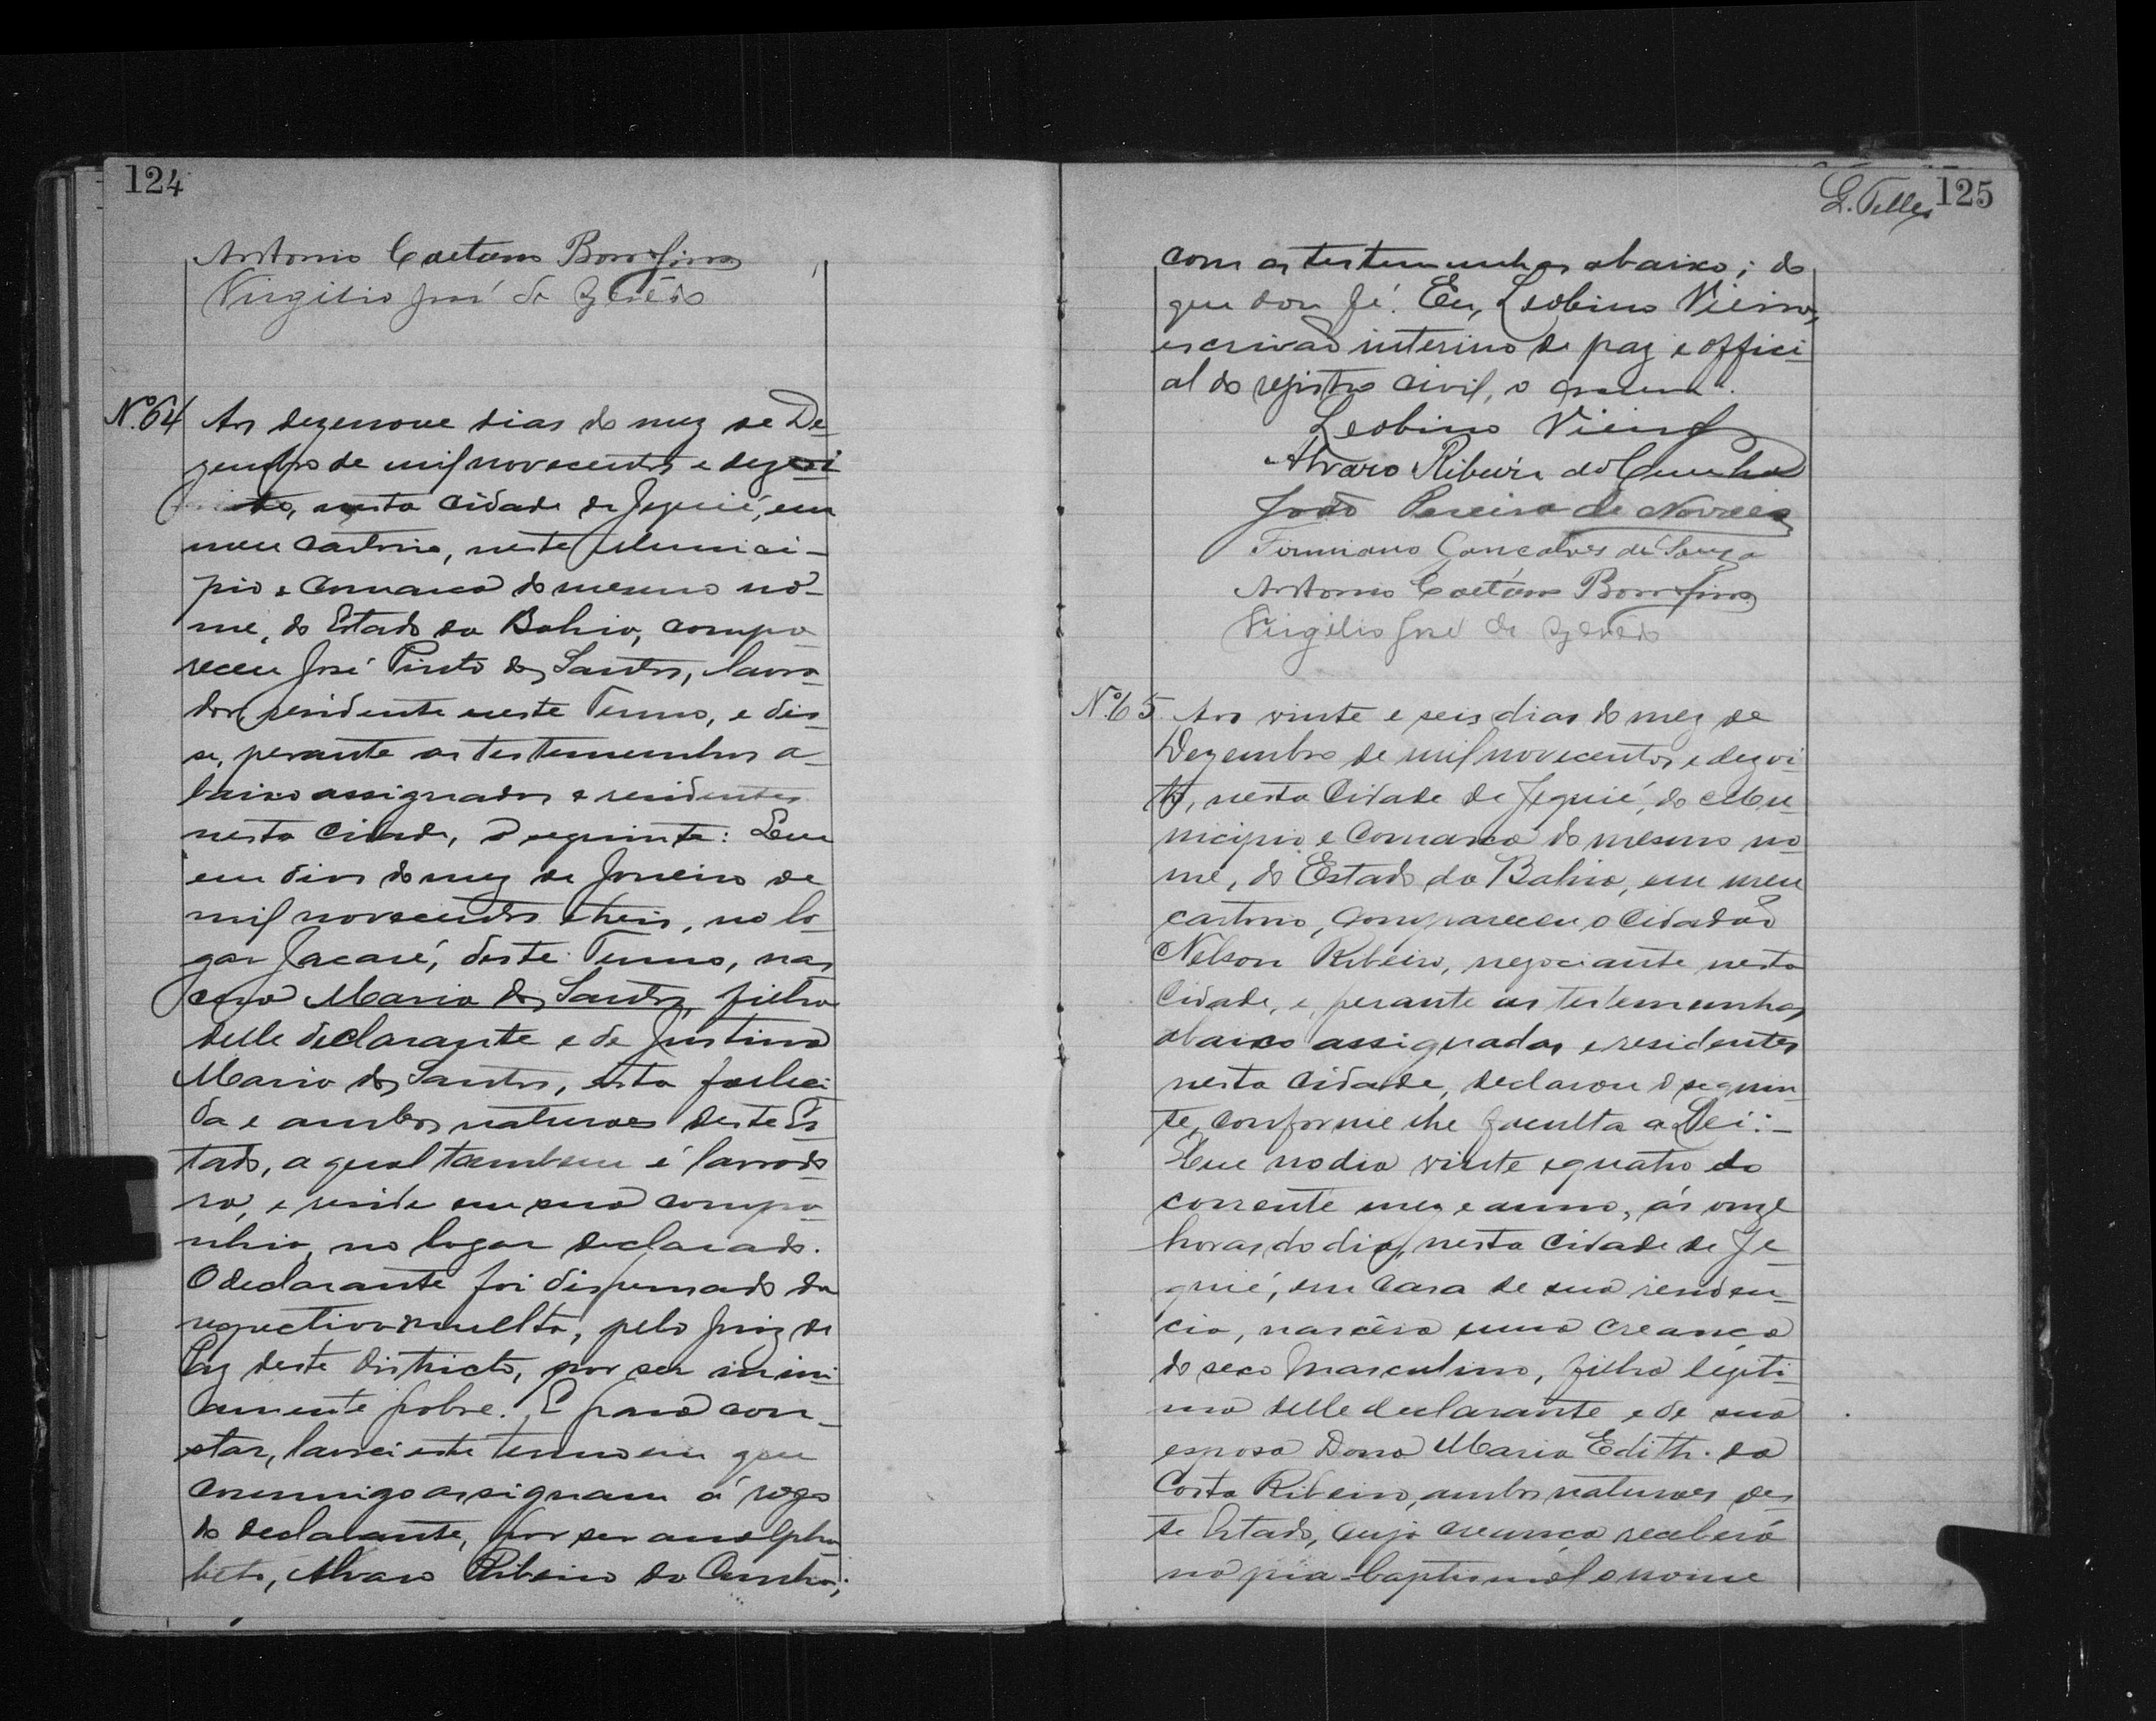 124
Antonio Caetano Bomfim
Virgilio José de Azevêdo
Nº 64 Aos dezenove dias do mez de De-
zembro de mil novecentos e dezoi
to, nesta cidade de Jequié, em
meu cartorio, neste Munici-
pio e Comarca do mesmo no-
me, do Estado da Bahia, compa-
receu José Pinto dos Santos, lavra-
dor, residente neste Termo, e dis-
se, perante as testemunhas a-
baixo assignadas e residentes
nesta cidade, o seguinte: Que
em dias do mez de Janeiro de
mil novecentos e treis, no lo-
gar Jacaré, deste Termo, nas-
cera Maria dos Santos, filha
delle declarante e de Justina
Maria dos Santos, esta falleci-
da e ambos naturaes deste Es-
tado, a qual tambem é lavrado-
ra, e reside em sua compa-
nhia, no logar declarado.
O declarante foi dispensado da
respectiva multa, pelo Juiz de
Paz deste districto, por ser
pobre. E para con-
star, lavrei este termo em que
commigo assignam á rogo
do declarante, por ser analpha-
beto, Alvaro Ribeiro da Cunha;
L. Telles 125
com as testemunhas abaixo; do
que dou fé. Eu, Leobino Vieira,
escrivão interino de paz e offici-
al do registro civil, o escrevi.
Leobino Vieira
Alvaro Ribeiro da Cunha
João Pereira de Novaes
Firmiano Gonçalves de Souza
Antonio Caetano Bomfim
Virgilio José de Azevêdo
Nº 65 Aos vinte e seis dias do mez de
Dezembro de mil novecentos e dezoi-
to, nesta Cidade de Jequié, do Mu-
nicipio e Comarca do mesmo no-
me, do Estado da Bahia, em meu
cartorio, compareceu o Cidadão
Nelson Ribeiro, negociante nesta
Cidade, e, perante as testemunhas
abaixo assignadas e residentes
nesta Cidade, declarou o seguin-
te, conforme lhe faculta a Lei:-
Que no dia vinte e quatro do
corrente mez e anno, ás onze
horas do dia, nesta Cidade de Je-
quié, em casa de sua residen-
cia, nascêra uma creança
do sexo masculino, filha legiti-
ma delle declarante e de sua
esposa Dona Maria Edith da
Costa Ribeiro, ambos naturaes des-
te Estado, cuja creança receberá
na pia baptismal o nome